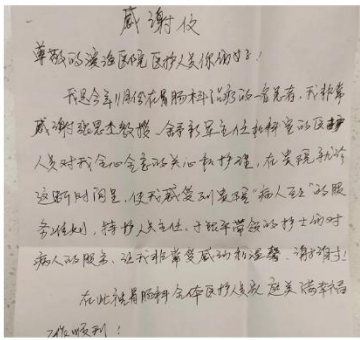 感谢信
尊敬的滨海医院医护人员你们好！
我是今年11月份在胃肠科治疗的一名患者，我非常
感谢张思杰教授、主任和科室的医护
人员对我全心全意的关心和护理，在贵院就诊
这段时间里，使我感受到贵院“病人至上”的服
务准则，特护人员主任、带领的护士们对
病人的服务，让我非常受感动和温馨，谢谢！
在此祝胃肠科全体医护人员家庭美满幸福
工作顺利！